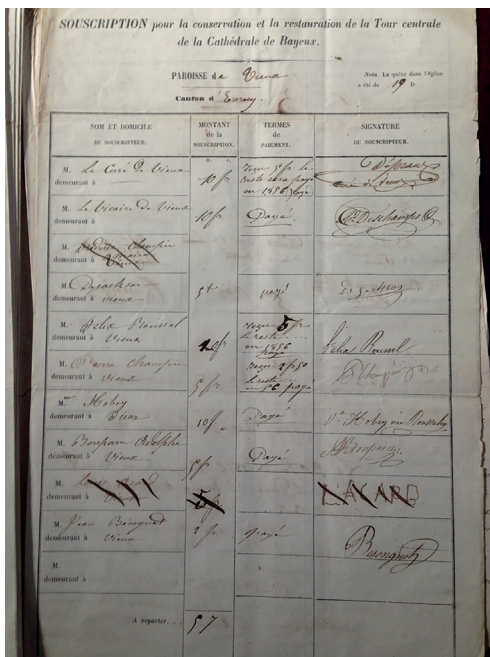 SOUSCRIPTION pour la conservation et la restauration de la Tour centrale
de la Cathédrale de Bayeux.
PAROISSE de Vieux
Canton d' Evrecy
Nota. La quête dans l'église
a été de 19 fr.
NOM ET DOMICILE DU SOUSCRIPTEUR.
MONTANT de la SOUSCRIPTION.
TERMES DE PAIEMENT.
SIGNATURE DU SOUSCRIPTEUR.
M. Le Curé de Vieux
demeurant à
10 fr
reçu 5 fr le
reste sera payé
en 1856 payé
curé de Vieux
M. Le Vicaire de Vieux
demeurant à
10 fr.
Payé
Deschamps
M. Champin
demeurant à Vieux
M.
demeurant à vieux
5 fr
payé
M. Felix Roussel
demeurant à Vieux
10 fr
reçu 5 fr
le reste
en 1856
payé
Roussel
M. Pierre Champin
demeurant à vieux
5 fr
reçu 2 f 50
le reste
en 56 payé
Mme Hobey
demeurant à Vieux
10 f
Payé
Ve Hobey née
M. Bonpain
demeurant à Vieux
5 fr
Payé
M.
demeurant à
5 f
M. Jean
demeurant à Vieux
2 fr
payé
M.
demeurant à
A reporter....
57